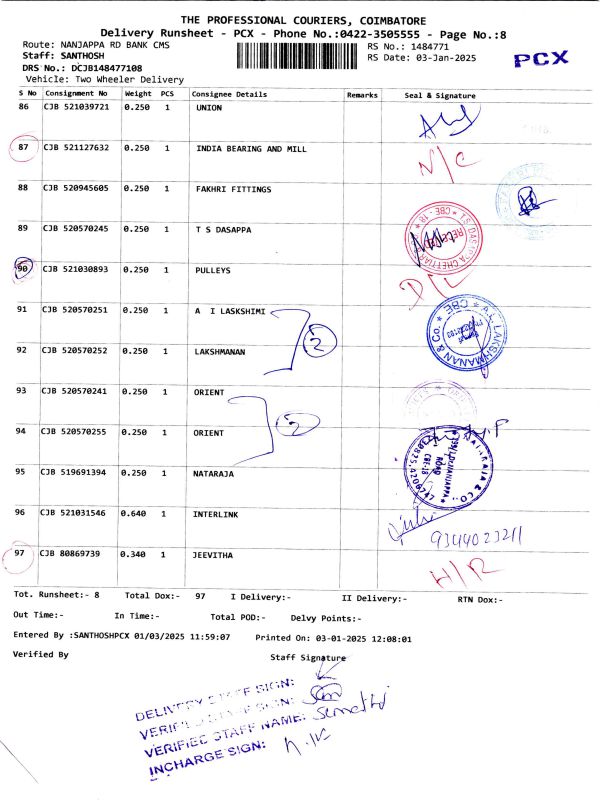 THE PROFESSIONAL COURIERS, COIMBATORE
Delivery Runsheet - PCX - Phone No.:0422-3505555 - Page No.:8
Route: NANJAPPA RD BANK CMS
RS No.: 1484771
Staff: SANTHOSH
RS Date: 03-Jan-2025
PCX
DRS No.: DCJB148477108
Vehicle: Two Wheeler Delivery
S No Consignment No Weight PCS Consignee Details Remarks Seal & Signature
86 CJB 521039721 0.250 1 UNION
87 CJB 521127632 0.250 1 INDIA BEARING AND MILL N/C
88 CJB 520945605 0.250 1 FAKHRI FITTINGS
89 CJB 520570245 0.250 1 T S DASAPPA
90 CJB 521030893 0.250 1 PULLEYS D/L
91 CJB 520570251 0.250 1 A I LASKSHIMI
2
92 CJB 520570252 0.250 1 LAKSHMANAN
93 CJB 520570241 0.250 1 ORIENT
2
94 CJB 520570255 0.250 1 ORIENT
95 CJB 519691394 0.250 1 NATARAJA
96 CJB 521031546 0.640 1 INTERLINK
9344023211
97 CJB 80869739 0.340 1 JEEVITHA H/R
Tot. Runsheet:- 8 Total Dox:- 97 I Delivery:- II Delivery:- RTN Dox:-
Out Time:- In Time:- Total POD:- Delvy Points:-
Entered By :SANTHOSHPCX 01/03/2025 11:59:07 Printed On: 03-01-2025 12:08:01
Verified By Staff Signature
DELIVERY STAFF SIGN:
VERIFIED STAFF SIGN:
VERIFIED STAFF NAME: Sumathi
INCHARGE SIGN: